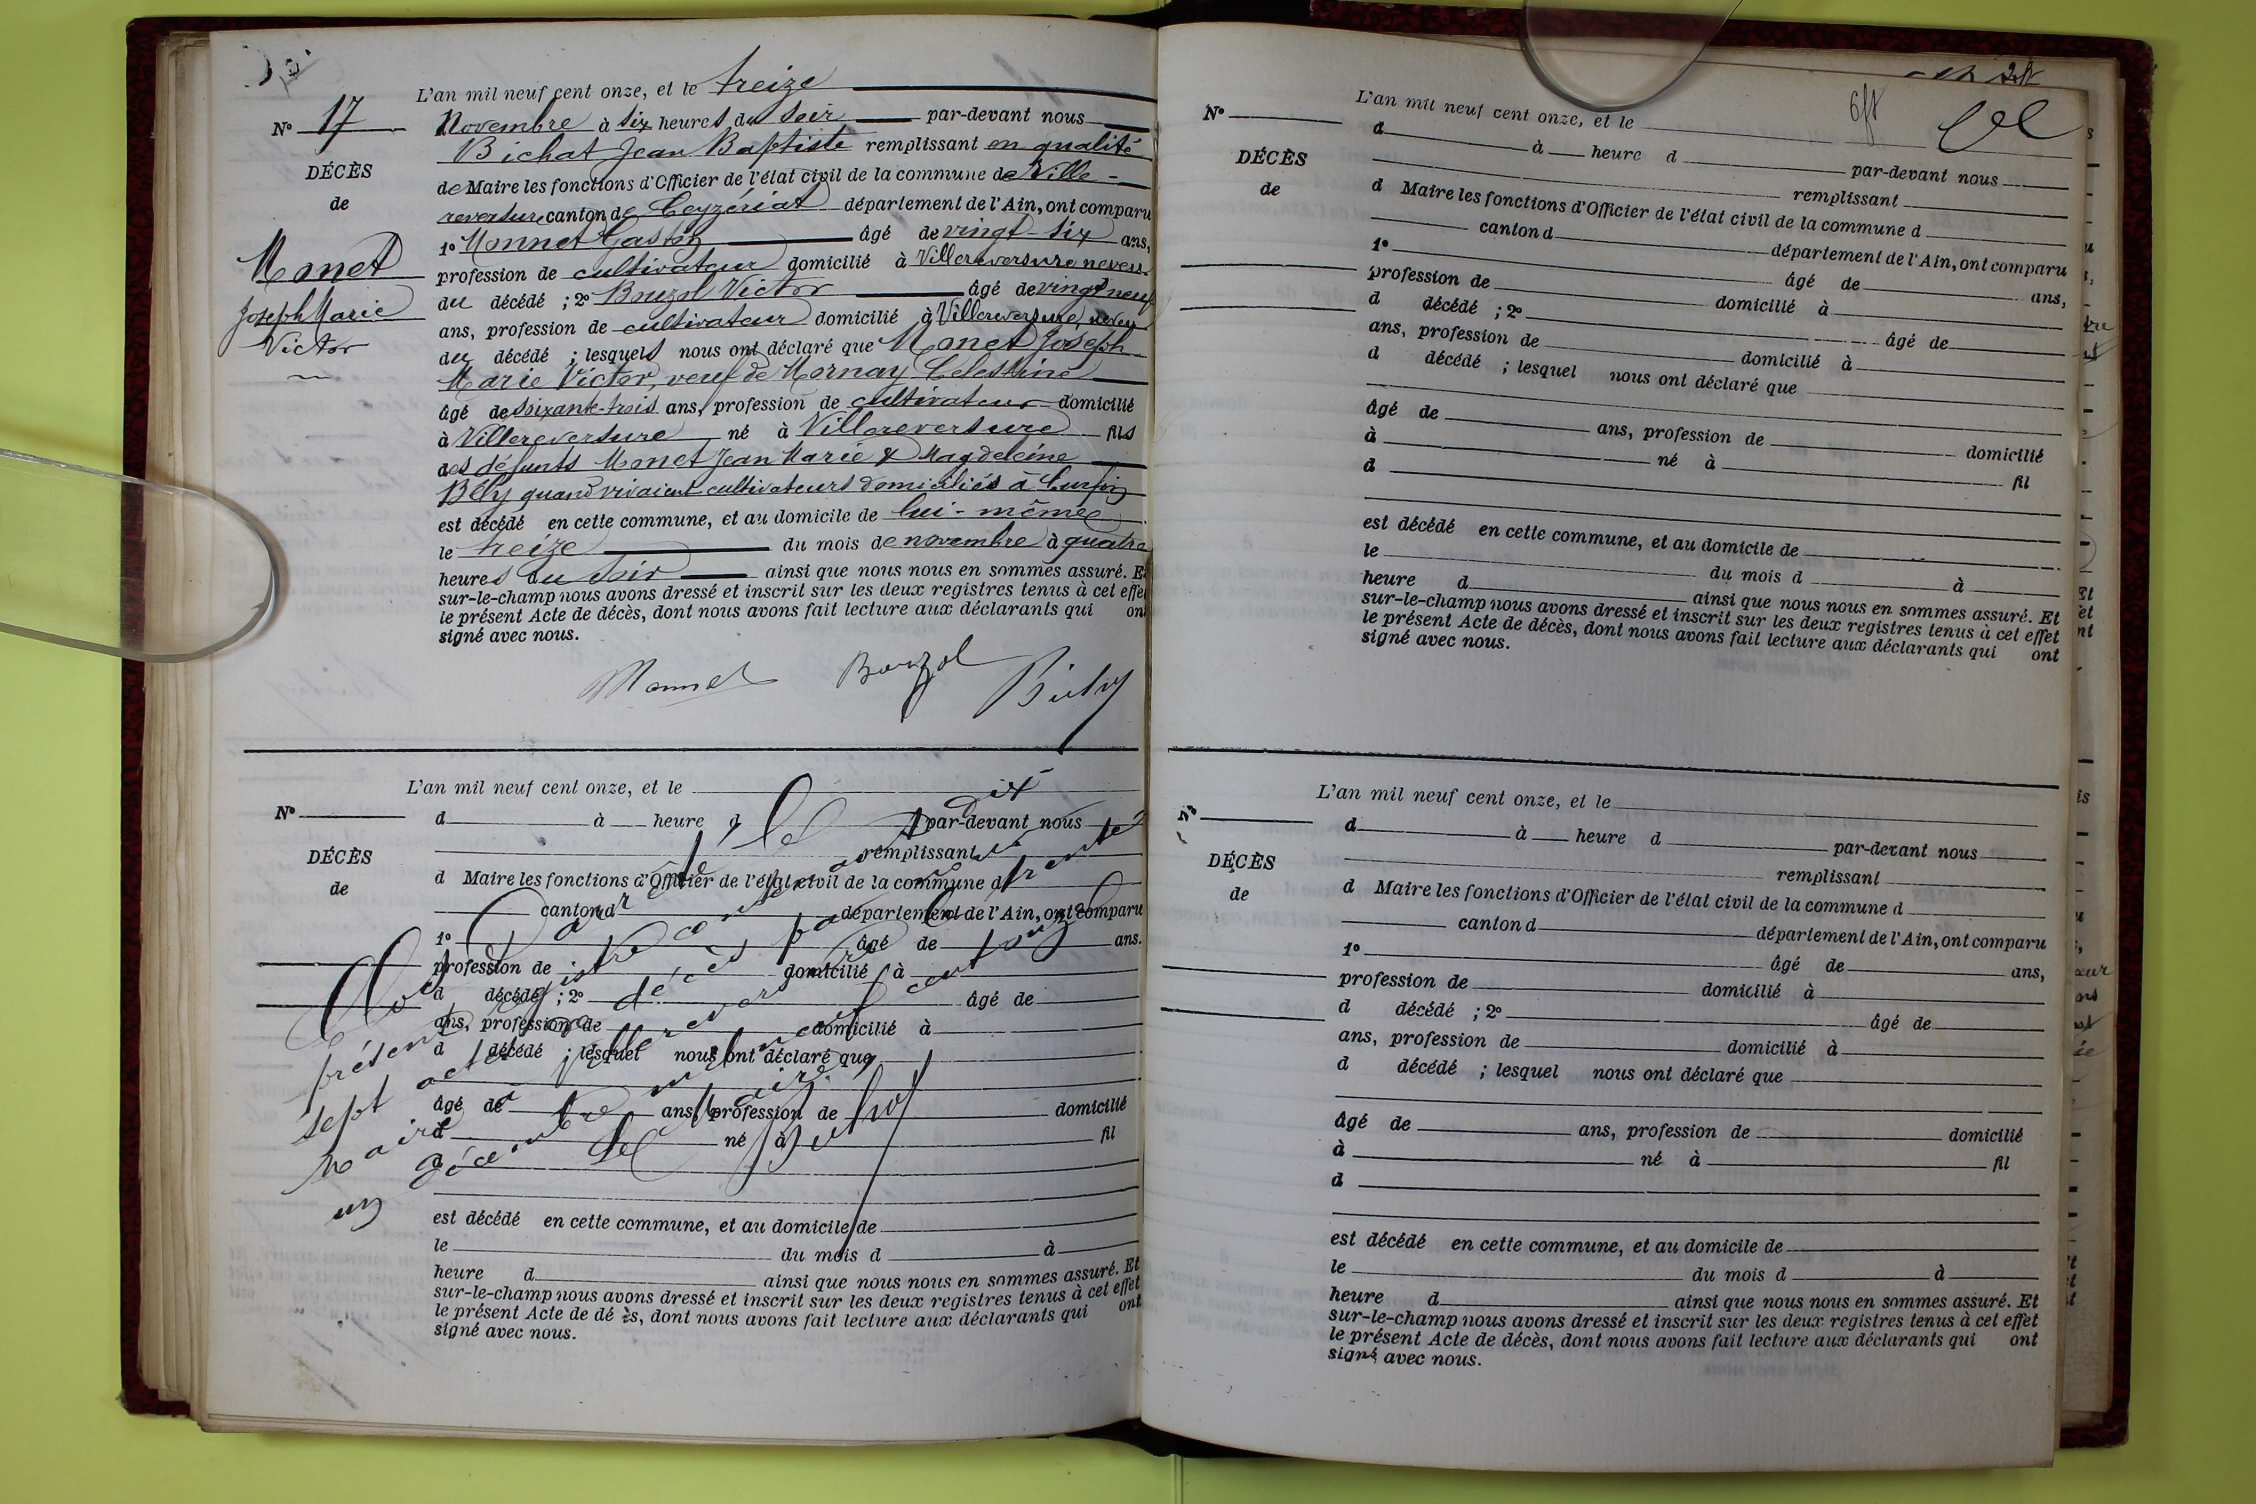 L'an mil neuf cent onze, et le treize
N° 17
Novembre à six heures du soir par-devant nous
Bichat Jean Baptiste remplissant en qualité
DÉCÈS
de Maire les fonctions d'Officier de l'état civil de la commune de Ville-
de
reversure canton de Ceyzériat département de l'Ain, ont comparu
1° Monnet Gaston âgé de vingt-six ans,
Monet
profession de cultivateur domicilié à Villereversure neveu
du décédé ; 2° Bouzol Victor âgé de vingt neuf
Joseph Marie
ans, profession de cultivateur domicilié à Villereversure, neveu
Victor
du décédé ; lesquels nous ont déclaré que Monet Joseph
Marie Victor, veuf de Mornay Célestine
âgé de soixante-trois ans, profession de cultivateur domicilié
à Villereversure né à Villereversure fils
des défunts Monet Jean Marie & Magdeleine
Bély quand vivaient cultivateurs domiciliés à
est décédé en cette commune, et au domicile de lui-même
le treize du mois de novembre à quatre
heures du soir ainsi que nous nous en sommes assuré. Et
sur-le-champ nous avons dressé et inscrit sur les deux registres tenus à cet effet
le présent Acte de décès, dont nous avons fait lecture aux déclarants qui ont
signé avec nous.
Monnet Bouzol
L'an mil neuf cent onze, et le
N°
d à heure d par-devant nous
remplissant
DÉCÈS
d Maire les fonctions d'Officier de l'état civil de la commune d
de
canton d département de l'Ain, ont comparu
1° âgé de ans.
profession de domicilié à
d décédé ; 2° âgé de
ans, profession de domicilié à
d décédé ; lesquel nous ont déclaré que
âgé de ans, profession de domicilié
à né à fil
d
est décédé en cette commune, et au domicile de
le du mois d à
heure d ainsi que nous nous en sommes assuré. Et
sur-le-champ nous avons dressé et inscrit sur les deux registres tenus à cet effet
le présent Acte de dé ès, dont nous avons fait lecture aux déclarants qui ont
signé avec nous.
Clos et
présent registre
sept actes de décès par
maire de Villereversure le trente
un décembre mil neuf cent onze
Le Maire,
L'an mil neuf cent onze, et le
N°
d à heure d par-devant nous
remplissant
DÉCÈS
de
d Maire les fonctions d'Officier de l'état civil de la commune d
canton d département de l'Ain, ont comparu
1° âgé de ans,
profession de domicilié à
d décédé ; 2° âgé de
ans, profession de domicilié à
d décédé ; lesquel nous ont déclaré que
âgé de ans, profession de domicilié
à né à fil
d
est décédé en cette commune, et au domicile de
le du mois d à
heure d ainsi que nous nous en sommes assuré. Et
sur-le-champ nous avons dressé et inscrit sur les deux registres tenus à cet effet
le présent Acte de décès, dont nous avons fait lecture aux déclarants qui ont
signé avec nous.
L'an mil neuf cent onze, et le
N°
d à heure d par-devant nous
remplissant
DÉCÈS
de
d Maire les fonctions d'Officier de l'état civil de la commune d
canton d département de l'Ain, ont comparu
1° âgé de ans,
profession de domicilié à
d décédé ; 2° âgé de
ans, profession de domicilié à
d décédé ; lesquel nous ont déclaré que
âgé de ans, profession de domicilié
à né à fil
d
est décédé en cette commune, et au domicile de
le du mois d à
heure d ainsi que nous nous en sommes assuré. Et
sur-le-champ nous avons dressé et inscrit sur les deux registres tenus à cet effet
le présent Acte de décès, dont nous avons fait lecture aux déclarants qui ont
signé avec nous.